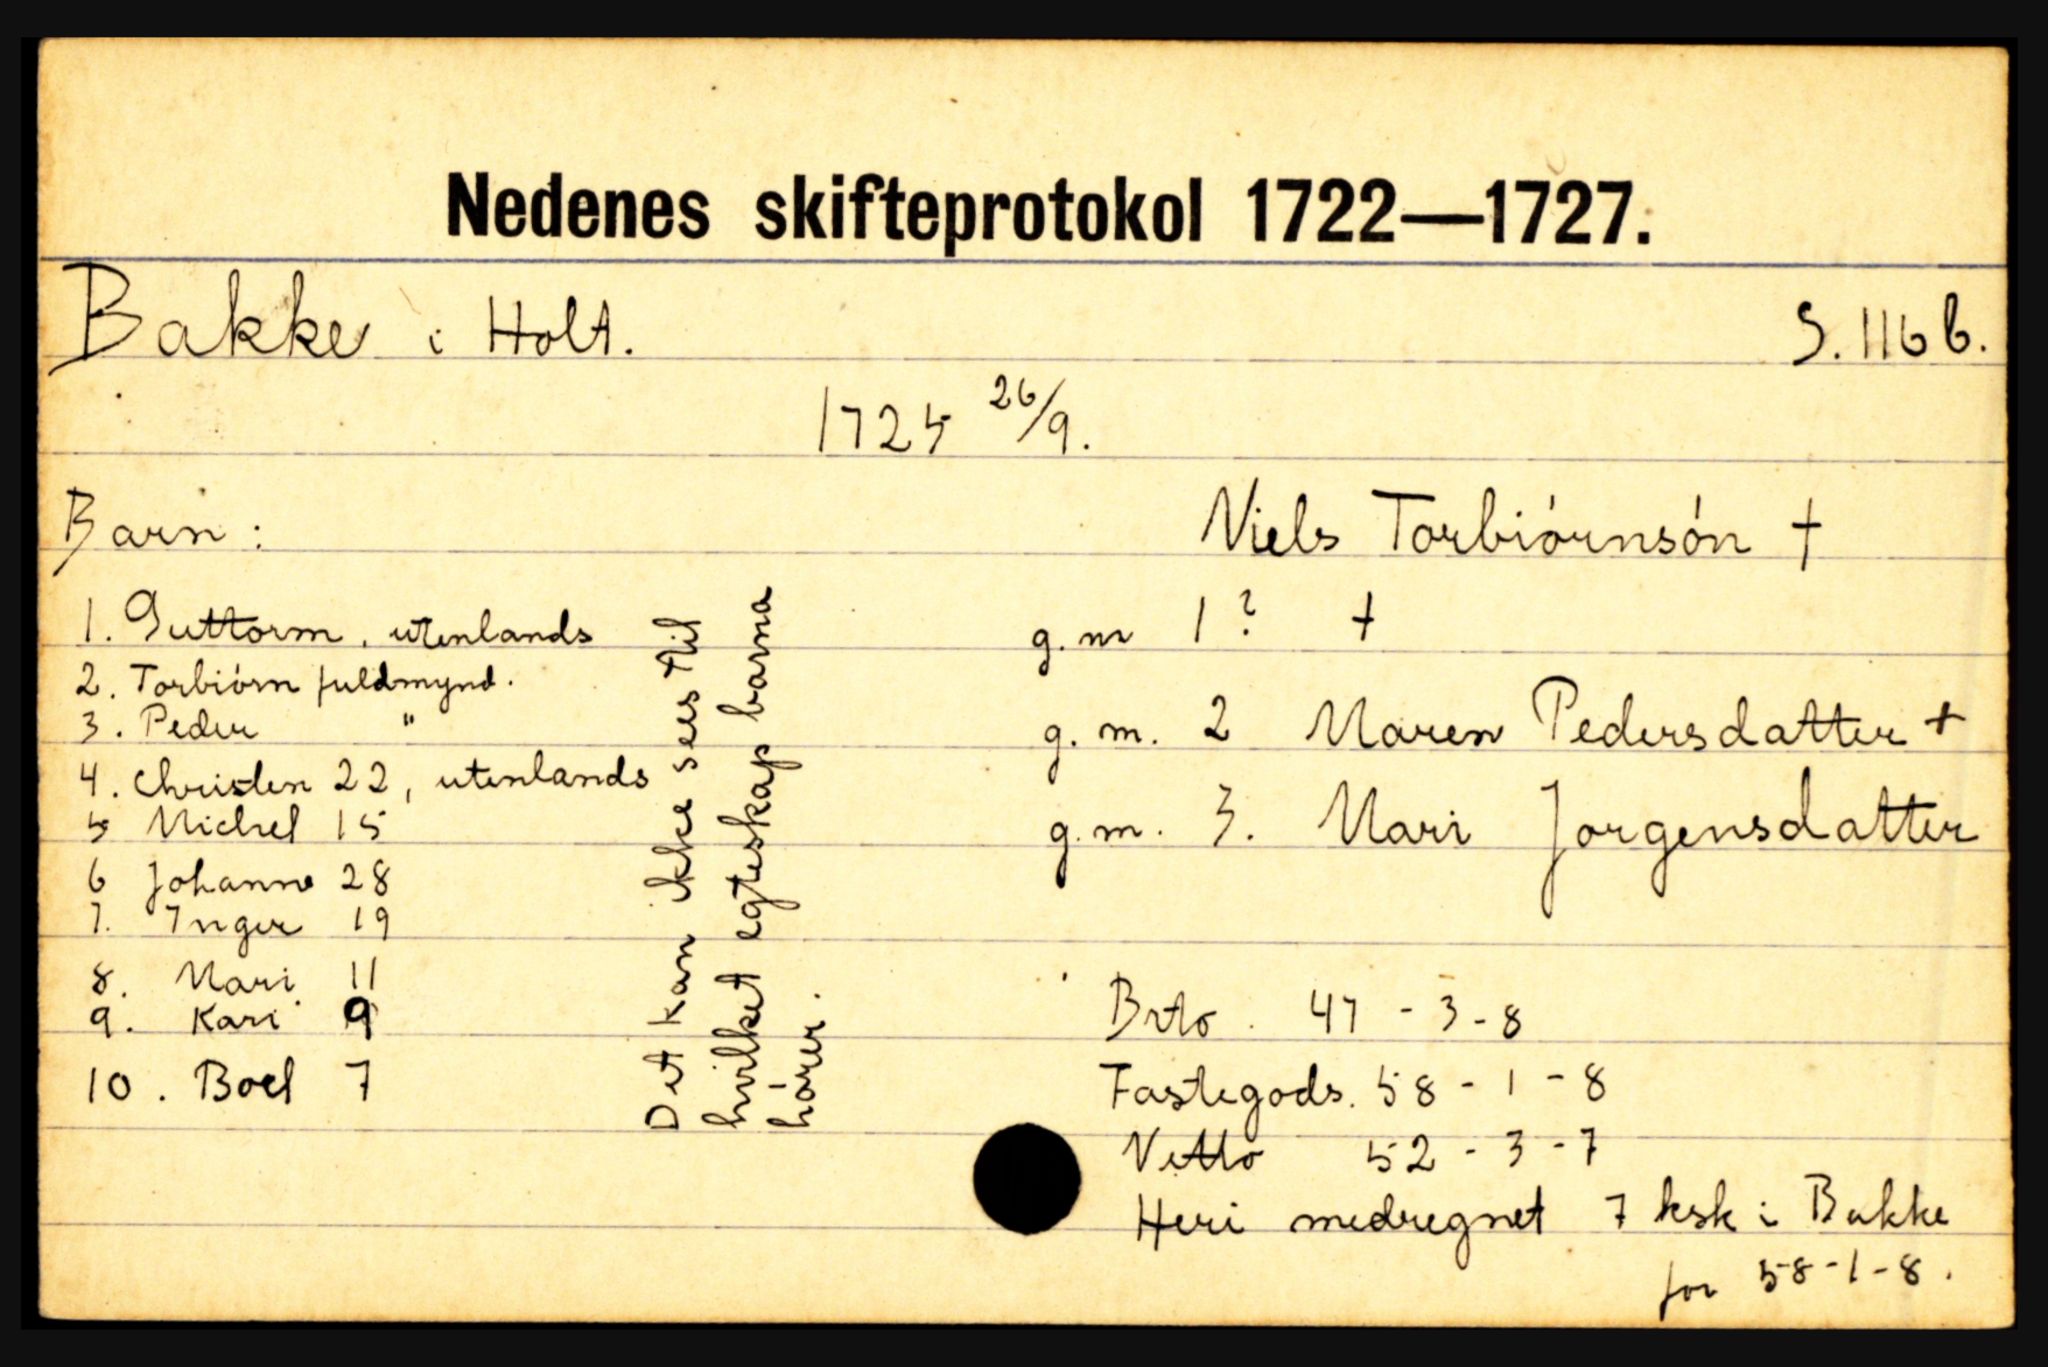 Nedenes skifteprotokol 1722—1727.
Bakke i Holt. S. 116 b.
1725 26/9.
Barn:
Niels Torbiórnsón †
1. Guttorm, utenlands
2. Torbiórn fuldmynd.
3. Peder "
4. Christen 22, utenlands
5 Michel 15
6 Johanne 28
7. Inger 19
8. Mari 11
9. Kari 9
10. Boel 7
Det kan ikke sees til
hvilket egteskap barna
hórer.
g. m 1 ? †
g. m. 2 Maren Pedersdatter +
g. m. 3. Mari Jorgensdatter
Brto. 47 - 3 - 8
Fastegods. 58 - 1 - 8
Netto 52 - 3 - 7
Heri medregnet 7 ksk i Bakke
for 58-1-8.